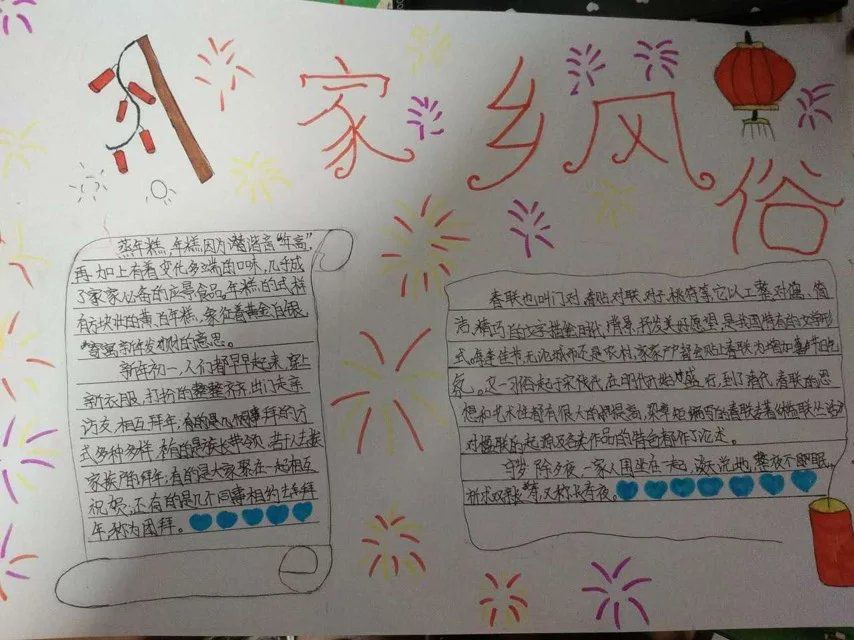 家乡风俗
蒸年糕,年糕因为谐音"年高",
再加上有着变化多端的口味,几乎成
了家家必备的应景食品。年糕的式样
有方块状的黄、白年糕,象征着黄金、白银,
寄寓新年发财的意思。
新年初一,人们都早早起来,穿上
新衣服,打扮的整整齐齐,出门去走亲
访友,相互拜年,有的是 拜的方
式多种多样,有的是族长带领若干人去挨
家挨户的拜年;有的是大家聚在一起相互
祝贺,还有的是几个同事相约去拜
年,称为团拜。
春联也叫门对、春贴、对联、对子、桃符等,它以工整、对偶、简
洁、精巧的文字描绘时代背景,抒发美好愿望,是我国特有的文学形
式。每逢佳节,无论城市还是农村,家家户户都会贴上春联,为增加喜节日气
氛。这一习俗起于宋代,在明代开始盛行,到了清代,春联的思
想和艺术性都有很大的提高,梁章钜编写的春联专著《楹联丛话》
对楹联的起源及各类作品的特色都作了论述。
守岁,除夕夜,一家人围坐在一起,谈天说地,整夜不眠,
祈求双 寿,又称长寿夜。